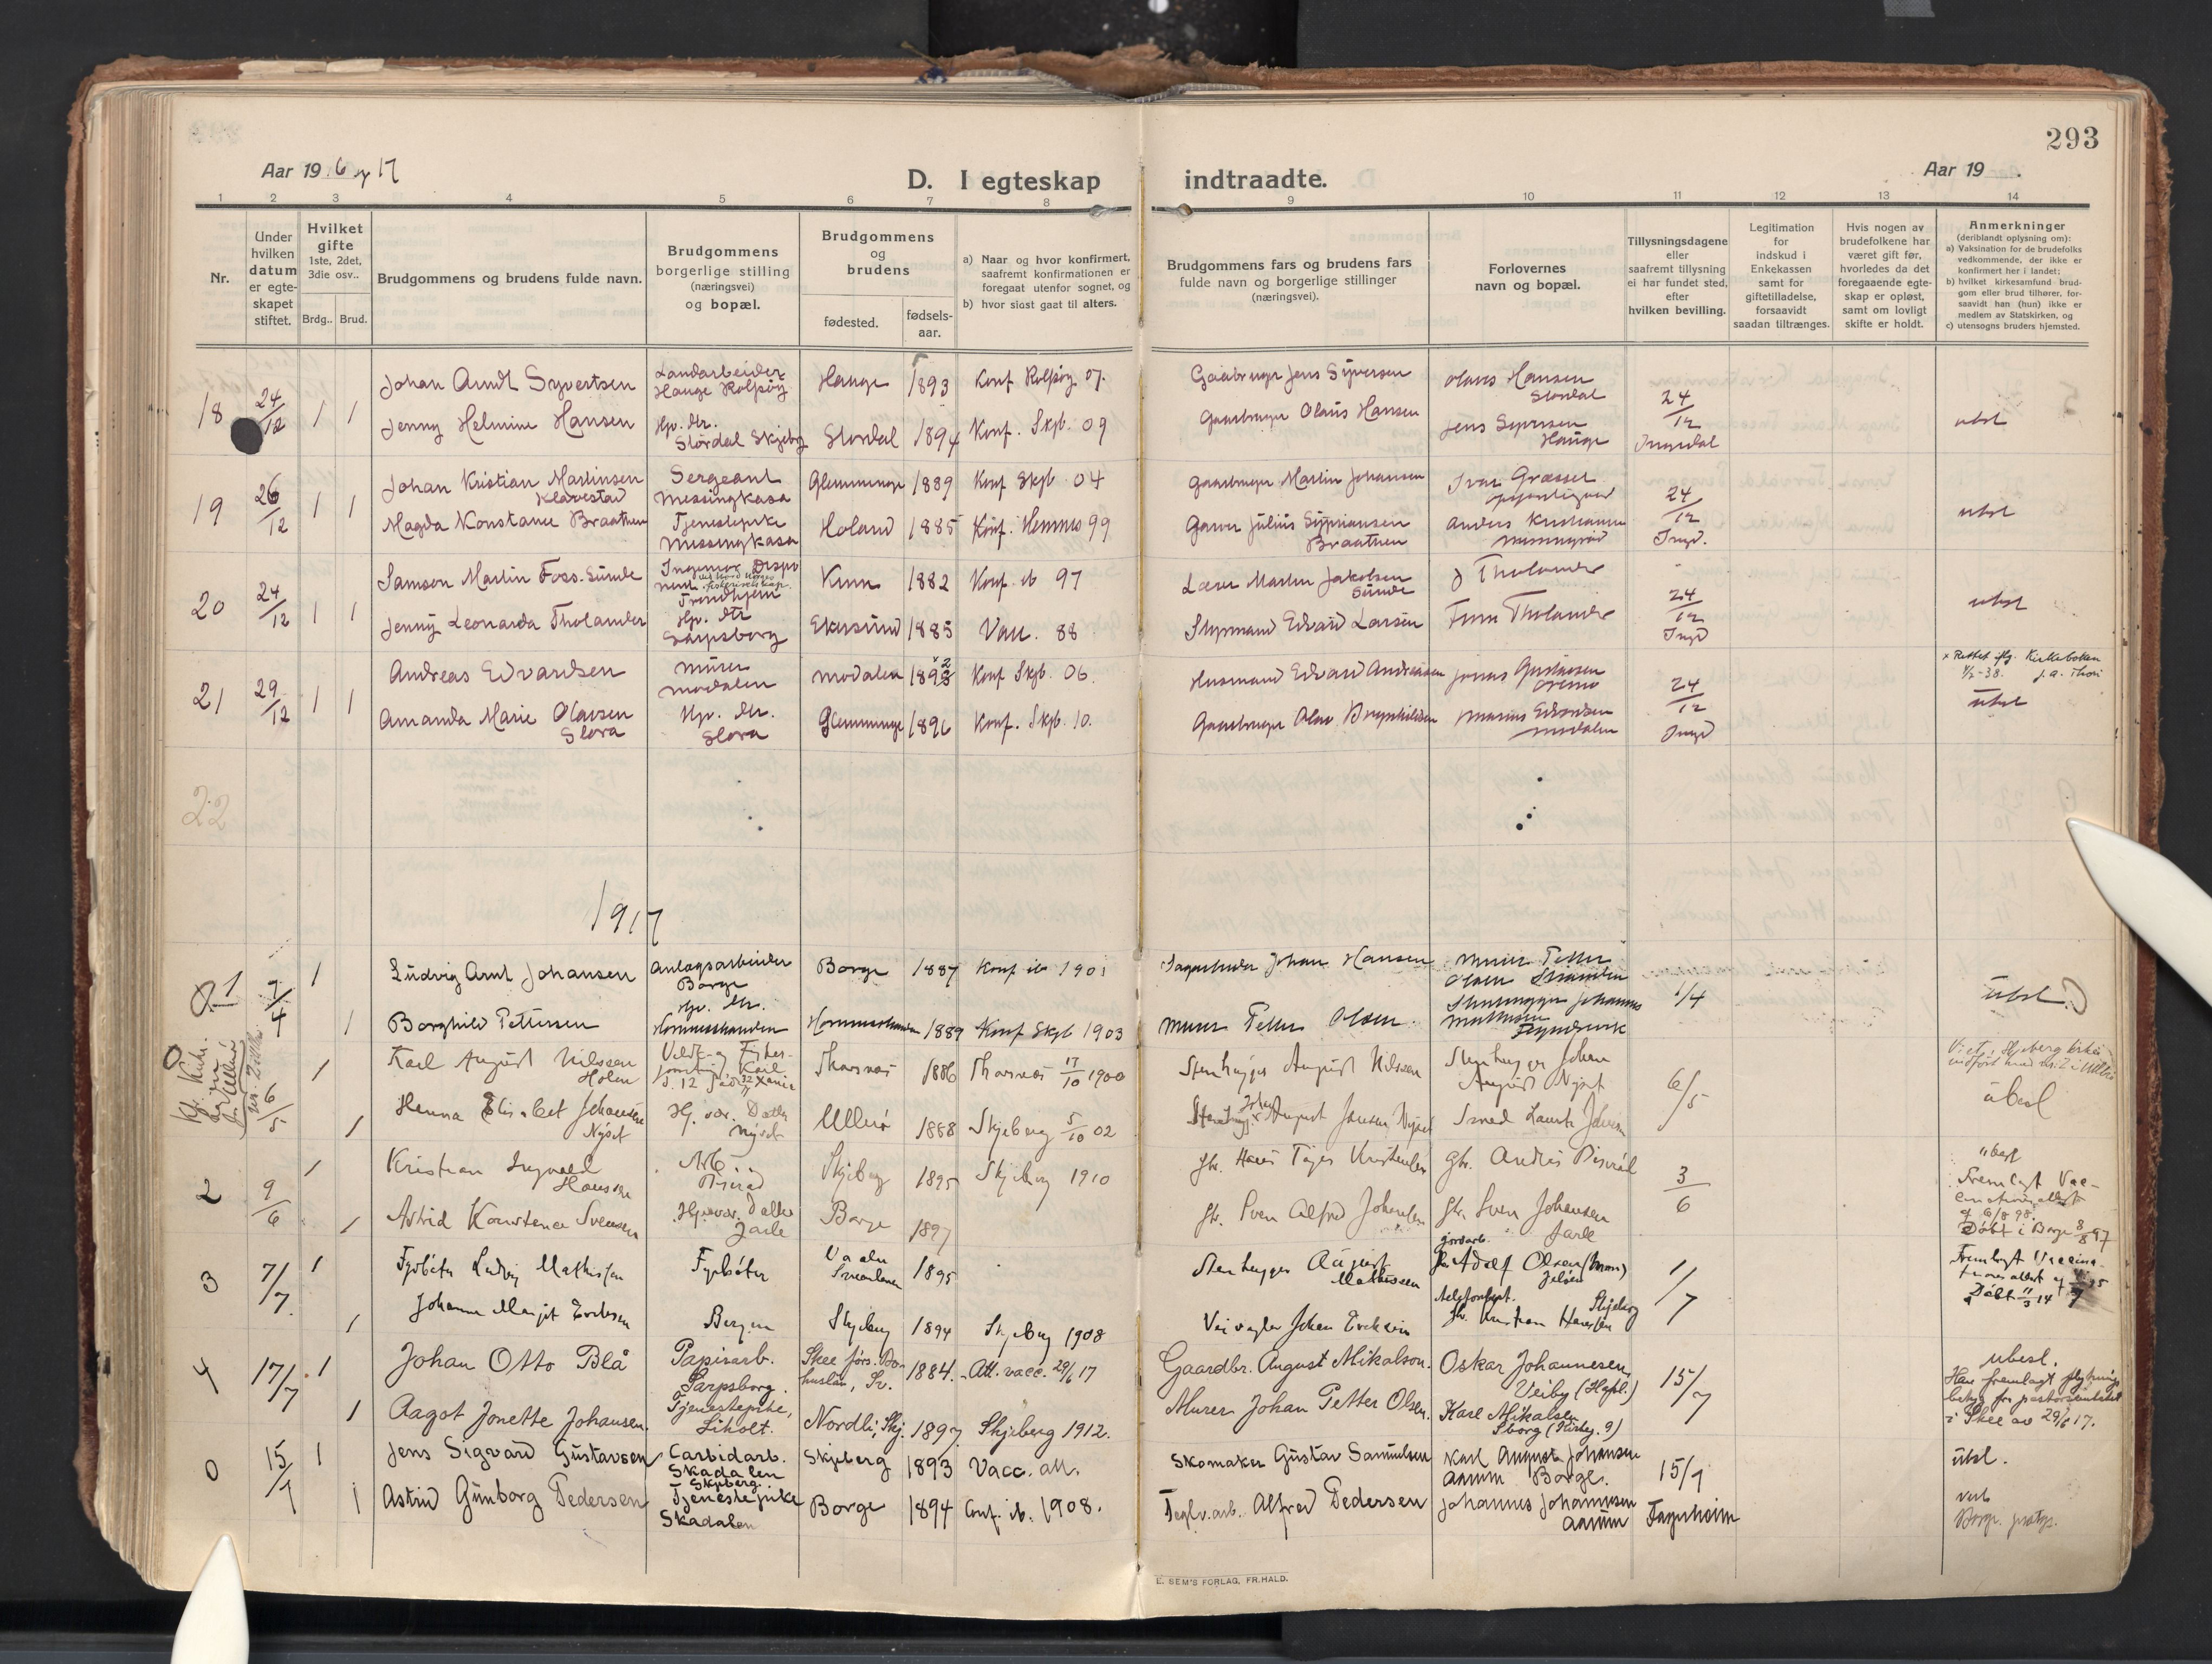 293
Aar 1916 og 17
D. I egteskap indtraadte.
Aar 19 .
1 2 3 4 5 6 7 8 9 10 11 12 13 14
Nr.
Under hvilken datum er egteskapet stiftet.
Hvilket gifte 1ste, 2det, 3die osv..
Brdg.. Brud.
Brudgommens og brudens fulde navn.
Brudgommens borgerlige stilling (næringsvei) og bopæl.
Brudgommens og brudens
fødested.
fødselsaar.
a) Naar og hvor konfirmert, saafremt konfirmationen er foregaat utenfor sognet, og
b) hvor sidst gaat til alters.
Brudgommens fars og brudens fars fulde navn og borgerlige stillinger (næringsvei).
Forlovernes navn og bopæl.
Tillysningsdagene eller saafremt tillysning ei har fundet sted, efter hvilken bevilling.
Legitimation for indskud i Enkekassen samt for giftetilladelse, forsaavidt saadan tiltrænges.
Hvis nogen av brudefolkene har været gift før, hvorledes da det foregaaende egteskap er opløst, samt om lovligt skifte er holdt.
Anmerkninger (deriblandt oplysning om):
a) Vaksination for de brudefolks vedkommende, der ikke er konfirmert her i landet;
b) hvilket kirkesamfund brudgom eller brud tilhører, forsaavidt han (hun) ikke er medlem av Statskirken, og
c) utensogns bruders hjemsted.
18 24/12 1 1
Johan Arndt Syvertsen Landarbeider Hauge Rolfsøy Hauge 1893 Konf Rolfsøy 07. Gaardbruger Jens Syversen Olaus Hansen Stordal 24/12
Jenny Helmine Hansen Hp. dtr. Stordal Skjeberg Stordal 1894 Konf. Skjb. 09 Gaardbruger Olaus Hansen Jens Syversen Hauge Ingedal ubsl
19 26/12 1 1
Johan Kristian Martinsen Klavestad Sergeant Messingkasa Glemminge 1889 Konf Skjb 04 Gaardbruger Martin Johansen Ivar Græsset 24/12
Magda Konstanse Braathen Tjenestepike Messingkasa Holand 1885 Konf. Hemnes 99 Garver Julius Sypriansen Braathen Anders Kristiansen Ingd. ubsl
20 24/12 1 1
Samson Martin Foss. Sunde Ingeniør Disponent Trondhjem Kinn 1882 Konf. ib 97 Lærer Martin Jakobsen Sunde J Tholander 24/12
Jenny Leonarda Tholander Hp. dtr Sarpsborg Ekersund 1885 Vacc. 88 Styrmand Edvard Larsen Tholander Ingd ubsl
21 29/12 1 1
Andreas Edvardsen Murer Modalen Modalen 1892 Konf Skjb. 06. Husmand Edvard Andreassen Jonas Gustavsen 24/12
x Rettet iflg. Kirkeboken 1/2-38. J. A. Thori
Amanda Marie Olavsen Slora Hp. dtr. Slora Glemminge 1896 Konf. Skjb. 10. Gaardbruger Olav Marius Edvardsen Modalen Ingd ubsl
22
1917
1 9/4 1 1
Ludvig Arnt Johansen Anlægsarbeider Borge Borge 1887 Konf ib 1901 Johan Hansen Murer Petter Olsen 1/4
Borghild Pettersen Hp. dtr. Hornnesstranden Hornnesstranden 1889 Konf Skjb 1903 Murer Petter Olsen. Johannes Mathisen ubsl.
0 6/5 1 1
Karl August Nilssen Holen Torsnes 1886 Torsnes 17/10 1900 Stenhugger August Nilsen Stenhugger Johan August Nyset 6/5
Viet i Skjeberg kirke
Henna Elisabet Johansen Nyset Hj. vær. Datter Nyset Ullerø 1888 Skjeberg 5/10 02 Johan August Jansen Nyset ubesl
2 9/6 1 1
Kristian Ingvald Hansen Arb. Skjeberg 1895 Skjeberg 1910 Gbr. Hans Gbr. Andreas 3/6
Astrid Konstance Svensen Hjemvær. Datter Jarle Borge 1897 Gbr. Sven Alfred Johansen Gbr. Sven Johansen Jarle
ubesl Fremlagt Vaccinationsattest af 6/8 98. Døbt i Borge 8/8 97
3 7/7. 1 1
Fyrbøter Ludvig Mathisen Fyrbøter Vaaler Smaalenene 1895 Stenhugger August Mathissen jordarb. Adolf Olsen (Moss) Jeløen 1/7
Johanne Margit Eriksen Bergen Skjeberg 1894 Skjeberg 1908 Veivogter Johan Eriksen Kristian Hansen Skjeberg
Fremlagt Vaccinationsattest Døbt 11/3 14
4 17/7 1 1
Johan Otto Blå Papirarb. Sarpsborg. Skee førs. Bohuslän, Sv. 1884. Att. vacc. 29/6 17 Gaardbr. August Mikalson. Oskar Johannesen, Veiby (Hafsl.) 15/7
Aagot Jonette Johansen. Tjenestepike, Liholt. Nordli, Skj. 1897. Skjeberg 1912. Murer Johan Petter Olsen. Karl Mikalsen Sborg
ubesl. Har fremlagt flytningsbetyg fra pastorsembetet i Skee av 29/6 17.
0 15/7 1 1
Jens Sigvard Gustavsen Carbidarb. Skadalen Skjeberg. Skjeberg 1893 Vacc. att. Skomaker Gustav Samuelsen Karl August Johansen Aarum Borge. 15/7 ubsl.
Astrid Gunborg Pedersen Tjenestepike Skadalen Borge 1894 Conf. ib. 1908. Teglv.arb. Alfred Pedersen Johannes Johannesen Aarum Fagerheim
E. SEM'S FORLAG, FR.HALD.